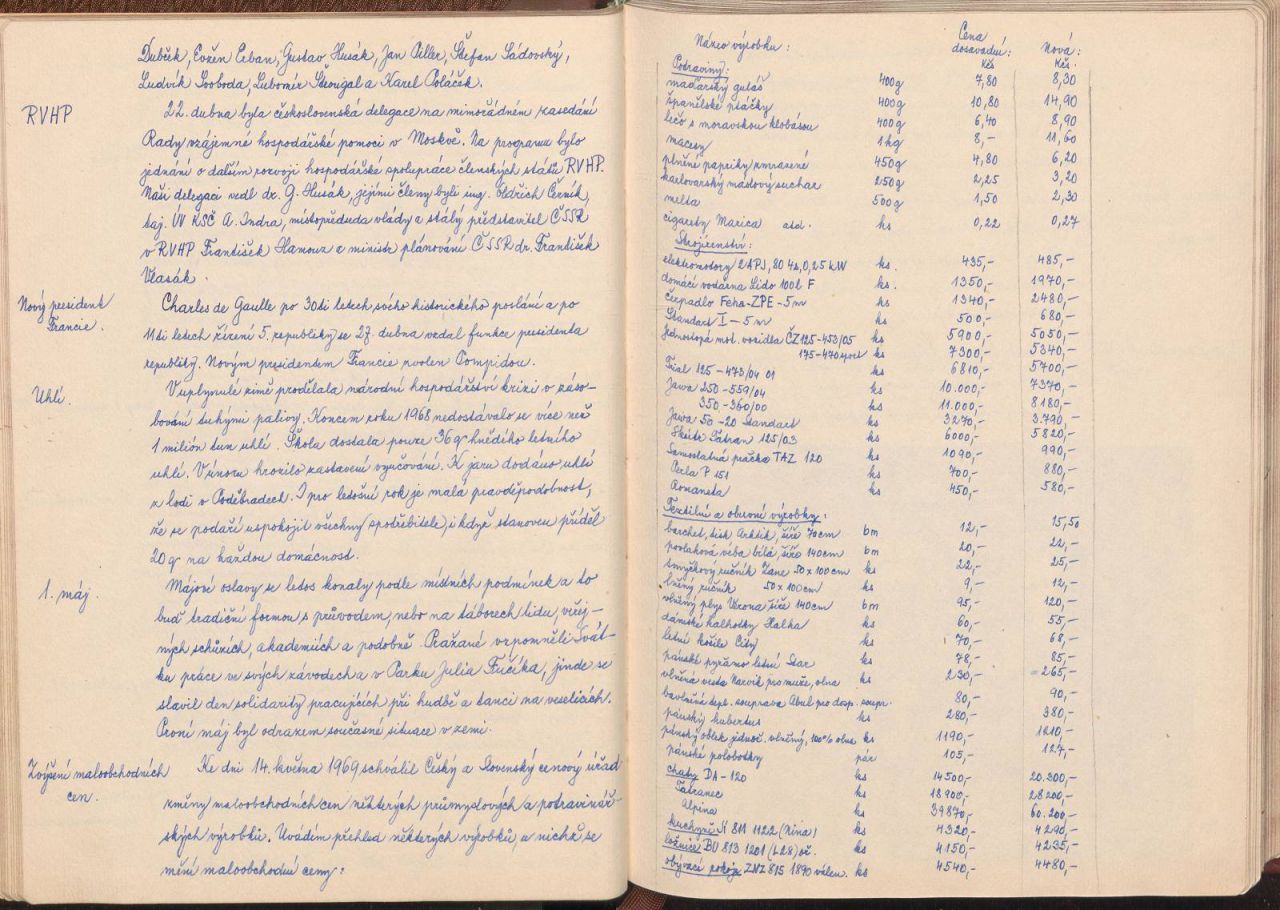 Dubček, Evžen Erban, Gustav Husák, Jan Piller, Štefan Sádovský,
Ludvík Svoboda, Lubomír Štrougal a Karel Poláček.
RVHP
22. dubna byla československá delegace na mimořádném zasedání
Rady vzájemné hospodářské pomoci v Moskvě. Na programu bylo
jednání o dalším rozvoji hospodářské spolupráce členských států RVHP.
Naši delegaci vedl dr. G. Husák, jejími členy byli ing. Oldřich Černík,
taj. ÚV KSČ A. Indra, místopředseda vlády a stálý představitel ČSSR
v RVHP František Hamouz a ministr plánování ČSSR dr. František
Vlasák.
Nový president
Francie.
Charles de Gaulle po 30ti letech svého historického poslání a po
11ti letech řízení 5. republiky se 27. dubna vzdal funkce presidenta
republiky. Novým presidentem Francie zvolen Pompidou.
Uhlí.
V uplynulé zimě prodělala národní hospodářství krizi v záso-
bování tuhými palivy. Koncem roku 1968 nedostávalo se více než
1 milión tun uhlí. Škola dostala pouze 36 q hnědého letního
uhlí. V únoru hrozilo zastavení vyučování. K jaru dodáno uhlí
z lodi v Poděbradech. I pro letošní rok je malá pravděpodobnost,
že se podaří uspokojit všechny spotřebitele, i když stanoven příděl
20 q na každou domácnost.
1. máj.
Májové oslavy se letos konaly podle místních podmínek a to
buď tradiční formou s průvodem, nebo na táborech lidu, veřej-
ných schůzích, akademiích a podobně. Pražané vzpomněli Svát-
ku práce ve svých závodech a v Parku Julia Fučíka, jinde se
slavil den solidarity pracujících, při hudbě a tanci na veselicích.
První máj byl odrazem současné situace v zemi.
Zvýšení maloobchodních
cen.
Ke dni 14. května 1969 schválil Český a Slovenský cenový úřad
změny maloobchodních cen některých průmyslových a potravinář-
ských výrobků. Uvádím přehled některých výrobků, u nichž se
mění maloobchodní ceny:
Název výrobku: Cena dosavadní: Nová:
Kčs Kčs
Potraviny:
maďarský guláš 400g 7,80 8,30
španělské ptáčky 400g 10,80 14,90
lečo s moravskou klobásou 400g 6,40 8,90
macesy 1kg 8,- 11,60
plněné papriky zmrazené 450g 4,80 6,20
karlovarský máslový suchar 250g 2,25 3,20
melta 500g 1,50 2,30
cigarety Marica atd. ks 0,22 0,27
Strojírenství:
elektromotory 2 APJ, 80 4s, 0,25 kW ks. 435,- 485,-
domácí vodárna Lido 100l F ks. 1350,- 1970,-
čerpadlo Feha-ZPE-5m ks 1340,- 2480,-
Standart I-5m ks 500,- 680,-
Jednostopá mot. vozidla ČZ 125-453/05 ks 5900,- 5050,-
175-470 sport ks 7300,- 5340,-
Trial 125-473/04 01 6810,- 5700,-
Jawa 250-559/04 ks 10.000,- 7370,-
350-360/00 ks 11.000,- 8180,-
Jawa 50-20 Standart ks 3270,- 3.790,-
Skútr Tatran 125/03 ks 6000,- 5820,-
Samostatná pračka TAZ 120 ks 1090,- 990,-
Perla P 151 ks 700,- 880,-
Romaneta ks 450,- 580,-
Textilní a obuvní výrobky:
barchet, tisk Arktik, šíře 70cm bm 12,- 15,50
povlaková véba bílá, šíře 140cm bm 20,- 22,-
smyčkový ručník Zane 50 x 100cm ks 22,- 25,-
lněný ručník 50 x 100cm ks 9,- 12,-
vlněný plyš Verona šíře 140cm bm 95,- 120,-
dámské kalhotky Halka ks 60,- 55,-
letní košile City ks 70,- 68,-
pánské pyžamo letní Star ks 78,- 85,-
vlněná vesta Narvik pro muže, vlna ks 230,- 265,-
bavlněná tepl. souprava Abul pro dosp. soupr. 80,- 90,-
pánský hubertus ks 280,- 380,-
pánský oblek jednoř. vlněný, 100% vlna ks 1190,- 1210,-
pánské polobotky pár 105,- 127,-
chaty DA-120 ks 14500,- 20.200,-
Tatranec ks 18900,- 28200,-
Alpina ks 39870,- 60.200,-
kuchyně N 811 1122 (Nina) ks 4320,- 4290,-
ložnice BU 813 1201 (L28) oř. ks 4150,- 4235,-
obývací pokoj ZNZ 815 1890 válen. ks 4540,- 4480,-